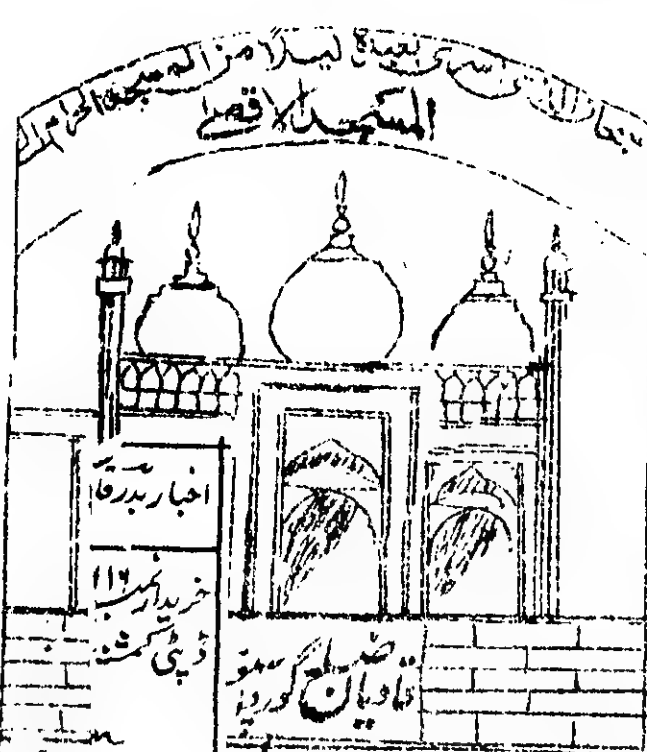 سبحان الذی اسری بعبدہ لیلا من المسجد الحرام الی
المسجد الاقصیٰ
اخبار بدر قا
خریدار نمبر ۱۱۶
ڈپٹی کمشنر
قادیان ضلع گورد